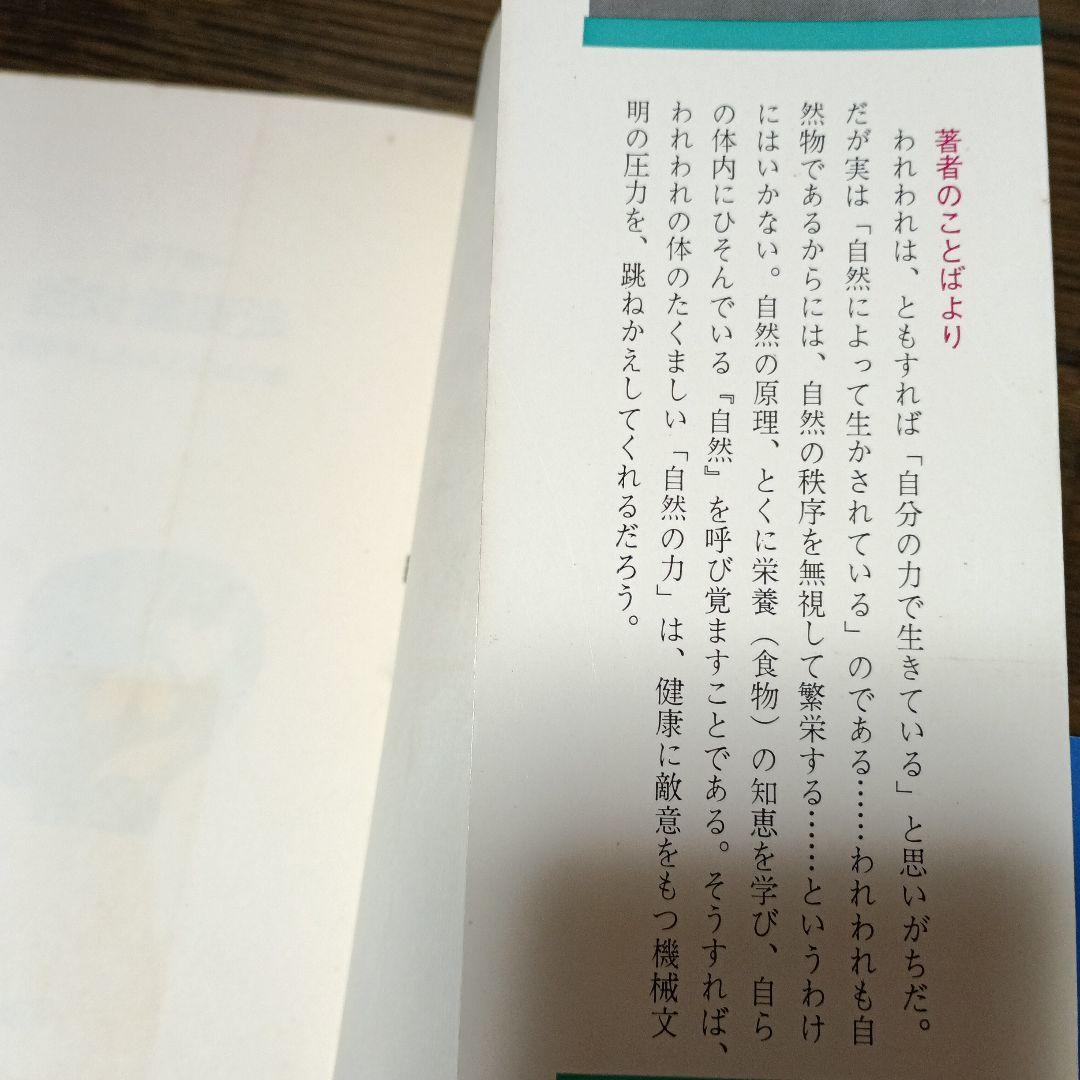 著者のことばより
われわれは、ともすれば「自分の力で生きている」と思いがちだ。
だが実は「自然によって生かされている」のである……われわれも自
然物であるからには、自然の秩序を無視して繁栄する……というわけ
にはいかない。自然の原理、とくに栄養（食物）の知恵を学び、自ら
の体内にひそんでいる『自然』を呼び覚ますことである。そうすれば、
われわれの体のたくましい「自然の力」は、健康に敵意をもつ機械文
明の圧力を、跳ねかえしてくれるだろう。